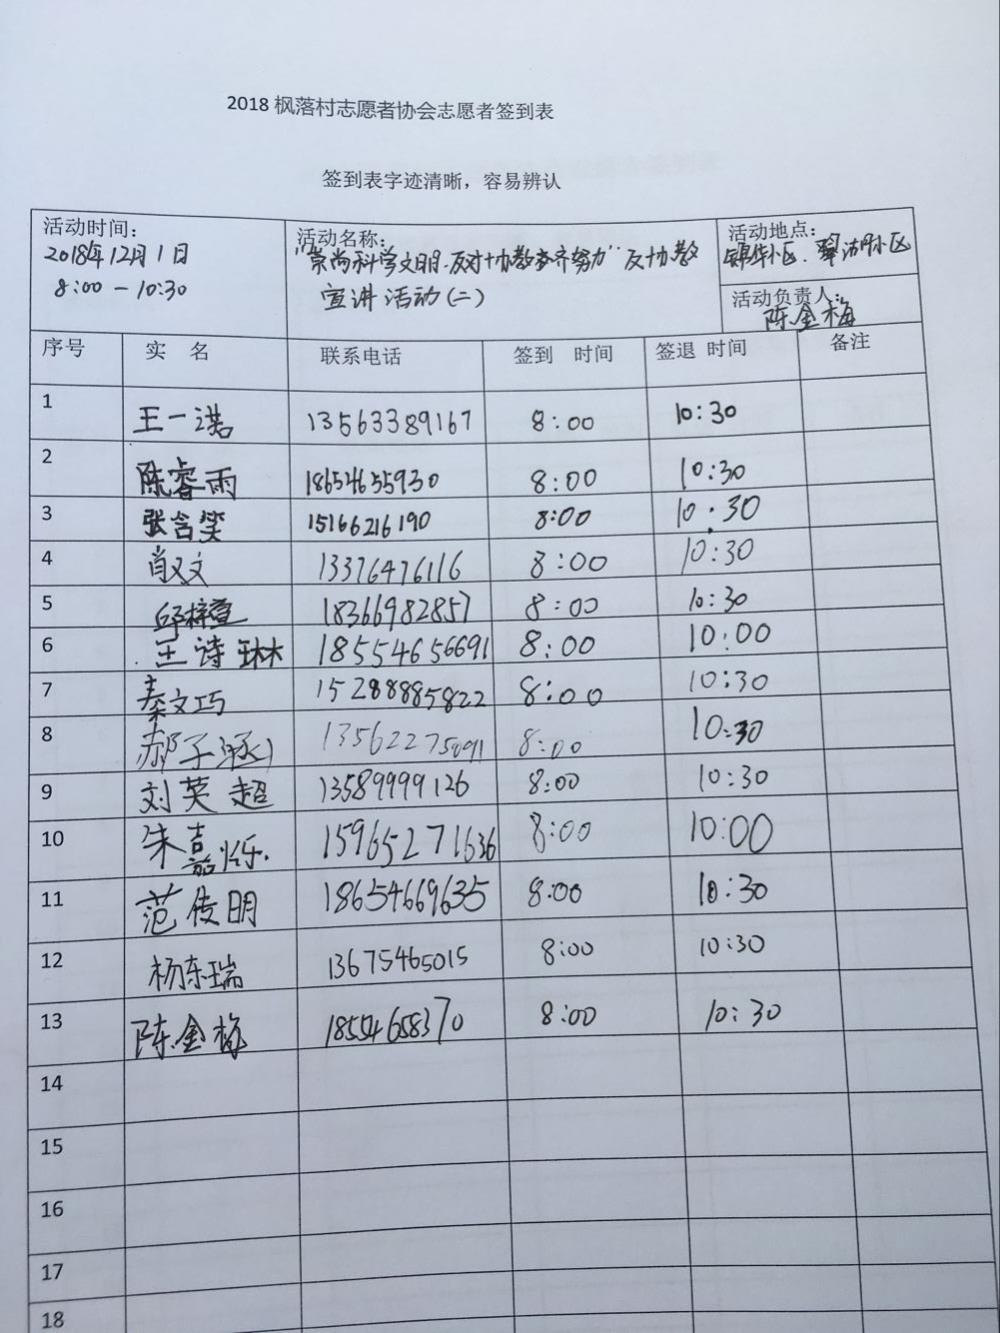 2018 枫落村志愿者协会志愿者签到表
签到表字迹清晰，容易辨认
活动时间：
2018年12月1日
8:00 — 10:30
活动名称：
"崇尚科学文明.反对协教齐努力"反协教
宣讲活动(二)
活动地点：
锦华小区. 小区
活动负责人：
陈金梅
序号 实 名 联系电话 签到 时间 签退 时间 备注
1 王一诺 13563389167 8:00 10:30
2 陈睿雨 18654655930 8:00 10:30
3 张含笑 15166216190 8:00 10:30
4 肖又文 13376476116 8:00 10:30
5 邱梓萱 18366982857 8:00 10:30
6 王诗琳 18554656691 8:00 10:00
7 秦文巧 15288885822 8:00 10:30
8 郝子涵 13562275091 8:00 10:30
9 刘英超 13589999126 8:00 10:30
10 朱嘉烁 15965271636 8:00 10:00
11 范传明 18654669635 8:00 10:30
12 杨东瑞 13675465015 8:00 10:30
13 陈金梅 18554658370 8:00 10:30
14
15
16
17
18